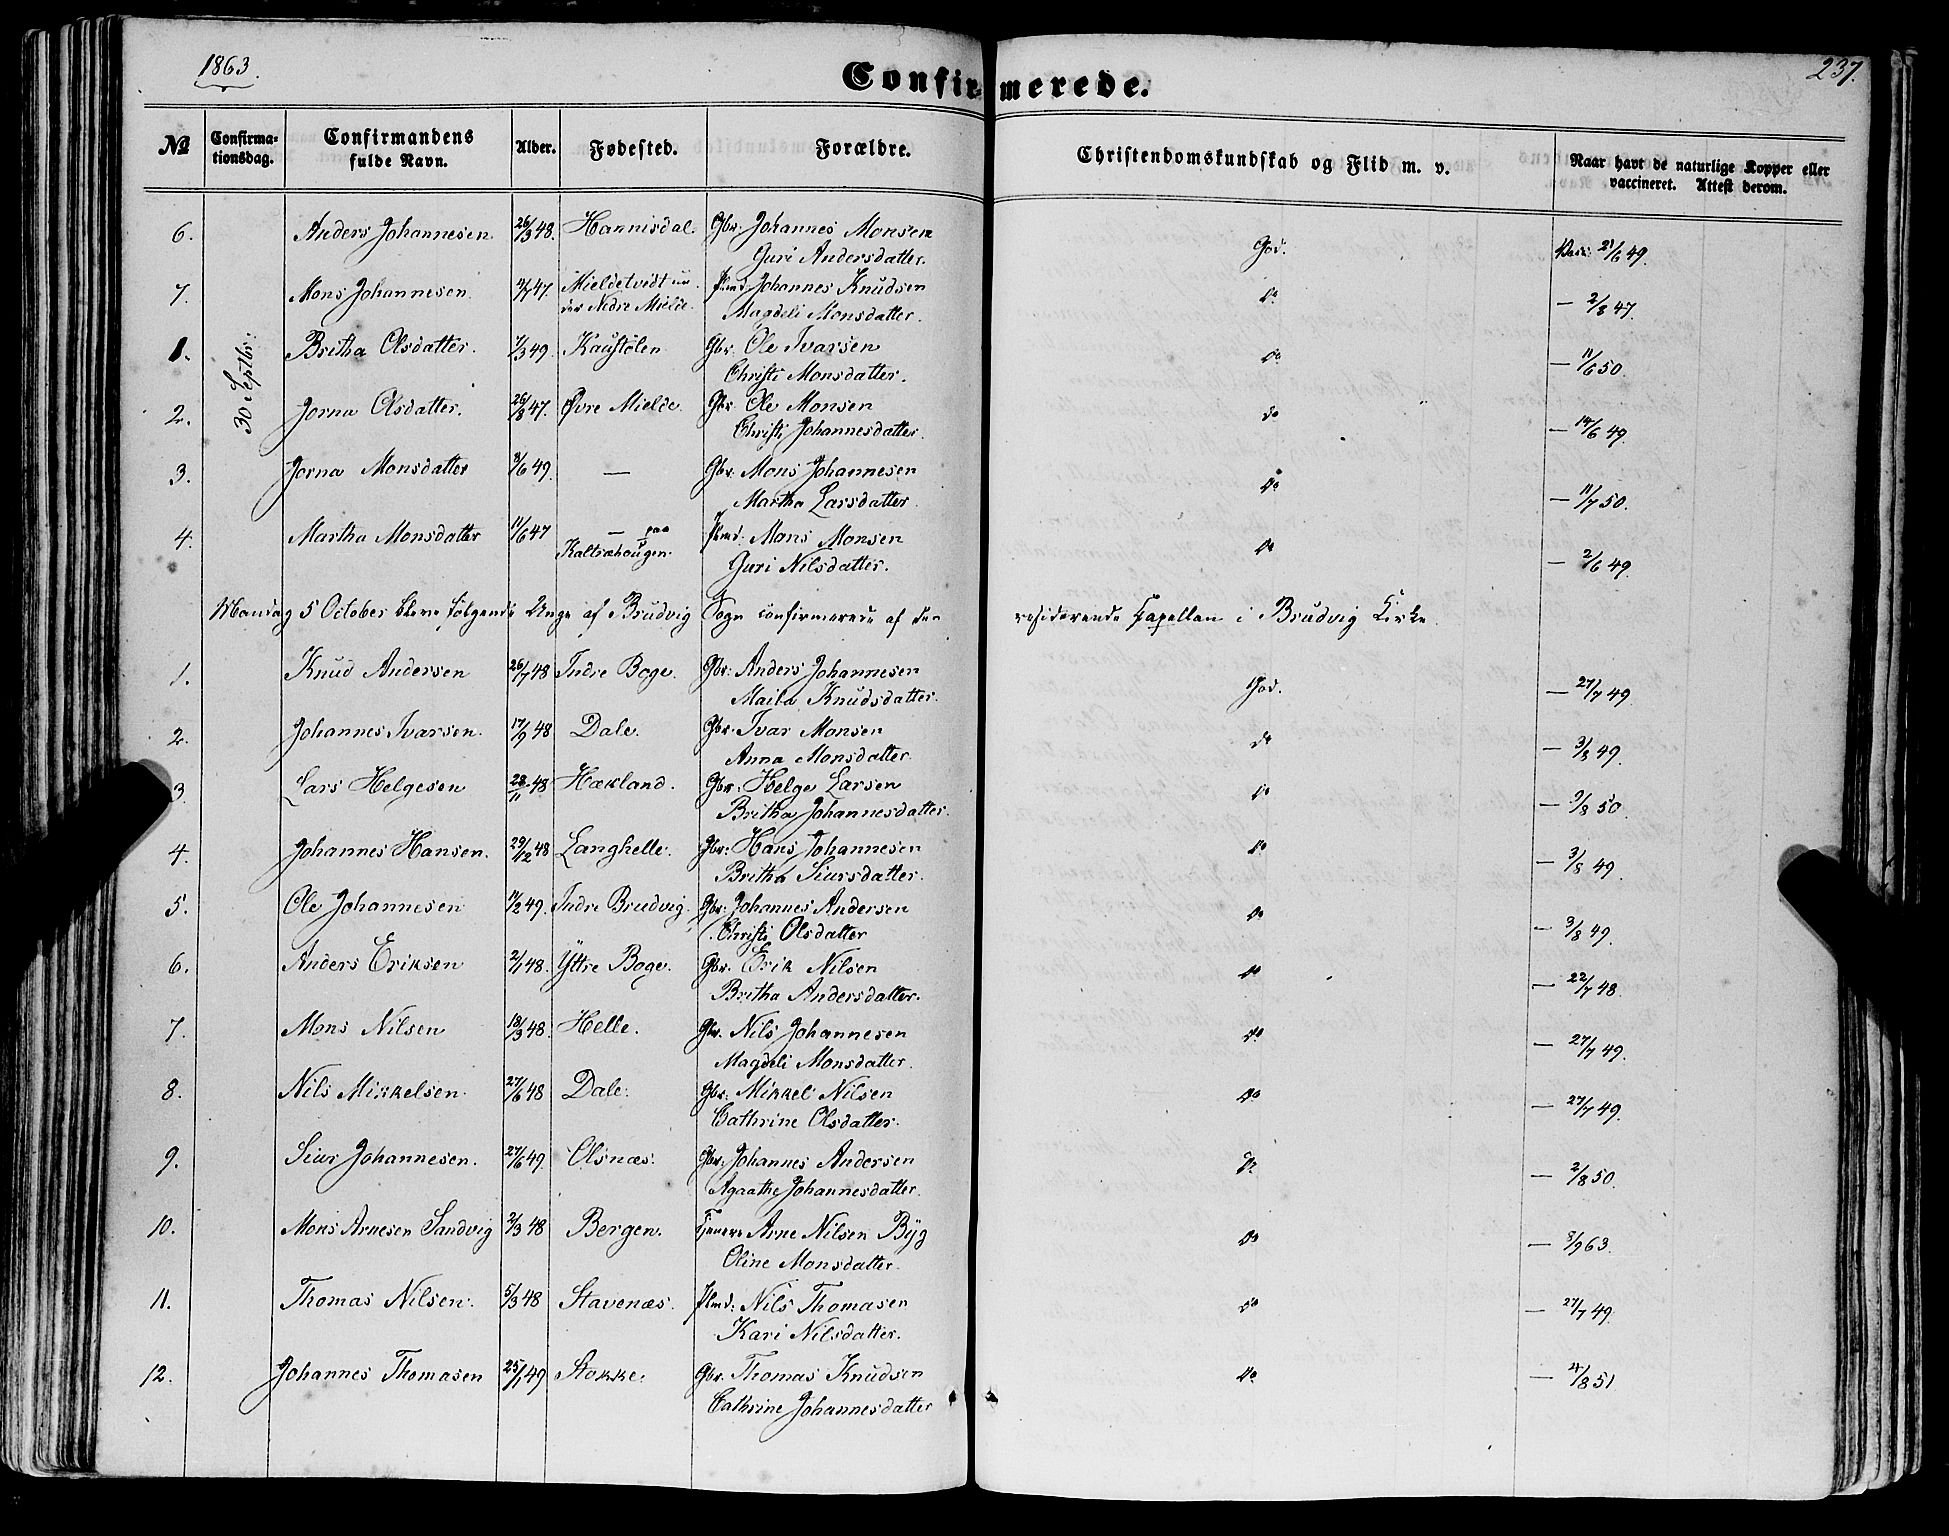 1863.
237.
Confirmerede.
№ Confirmationsdag. Confirmandens fulde Navn. Alder. Fødested. Forældre. Christendomskundskab og Flid m. v. Naar havt de naturlige Kopper eller vaccineret. Attest derom.
6. Anders Johannesen 26/3 48. Hannisdal. Gbr. Johannes Monsen God. Vacc. 21/6 49.
Guri Andersdatter.
7. Mons Johannesen 11/7 47. Mieldetvedt un- Plmd. Johannes Knudsen do — 2/8 47.
der Nedre Mielde. Magdeli Monsdatter.
30 Septbr:
1. Britha Olsdatter. 7/3 49 Kaustølen Gbr. Ole Ivarsen do — 11/6 50.
Christi Monsdatter.
2. Jorna Olsdatter. 26/8 47. Øvre Mielde. Gbr. Ole Monsen do — 14/6 49.
Christi Johannesdatter.
3. Jorna Monsdatter 8/6 49. — Gbr. Mons Johannesen do — 11/7 50.
Martha Larsdatter.
4. Martha Monsdatter 11/6 47 — paa Plmd. Mons Monsen do — 2/6 49.
Kaltrahougen. Guri Nilsdatter.
Mandag 5 October bleve følgende Unge af Brudvig Sogn confirmerede af den residerende Capellan i Brudvig Kirke.
1. Knud Andersen 26/7 48 Indre Boge. Gbr. Anders Johannesen God. — 27/7 49
Maila Knudsdatter.
2. Johannes Ivarsen. 17/9 48 Dale. Gbr. Ivar Monsen do — 3/8 49.
Anna Monsdatter.
3. Lars Helgesen 28/11 48 Hækland. Gbr. Helge Larsen do — 9/8 50.
Britha Johannesdatter.
4. Johannes Hansen. 29/12 48 Langhelle. Gbr: Hans Johannesen do — 3/8 49.
Britha Siursdatter.
5. Ole Johannesen 11/2 49. Indre Brudvig. Gbr. Johannes Andersen do — 3/8 49.
Christi Olsdatter
6. Anders Eriksen 2/1 48. Yttre Boge. Gbr. Erik Nilsen do — 22/7 48.
Britha Andersdatter.
7. Mons Nilsen 18/3 48. Helle. Gbr. Nils Johannesen do — 27/7 49.
Magdeli Monsdatter.
8. Nils Mikkelsen. 27/6 48 Dale. Gbr. Mikkel Nilsen do — 27/7 49.
Cathrine Olsdatter.
9. Siur Johannesen. 27/6 49. Olsnæs. Gbr. Johannes Andersen do — 2/8 50.
Agaathe Johannesdatter.
10. Mons Arnesen Sandvig 2/3 48 Bergen. Arne Nilsen Byg do — 3/9 63.
Oline Monsdatter.
11. Thomas Nilsen. 5/3 48 Stavenæs. Plmd: Nils Thomasen do — 27/7 49.
Kari Nilsdatter.
12. Johannes Thomasen 25/1 49 Stokke. Gbr. Thomas Knudsen do — 4/8 51
Cathrine Johannesdatter